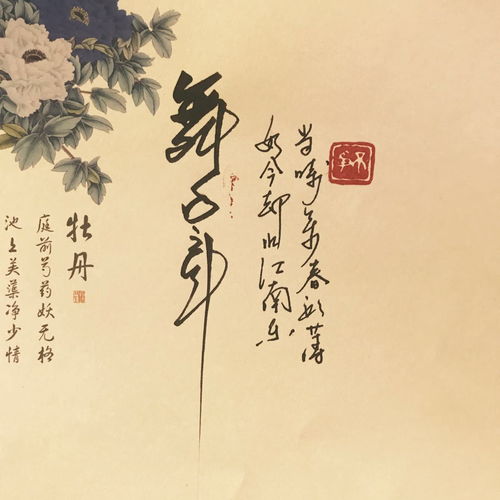 当时年少春衫薄
如今却忆江南乐
舞
牡丹
庭前芍药妖无格
池上芙蕖净少情